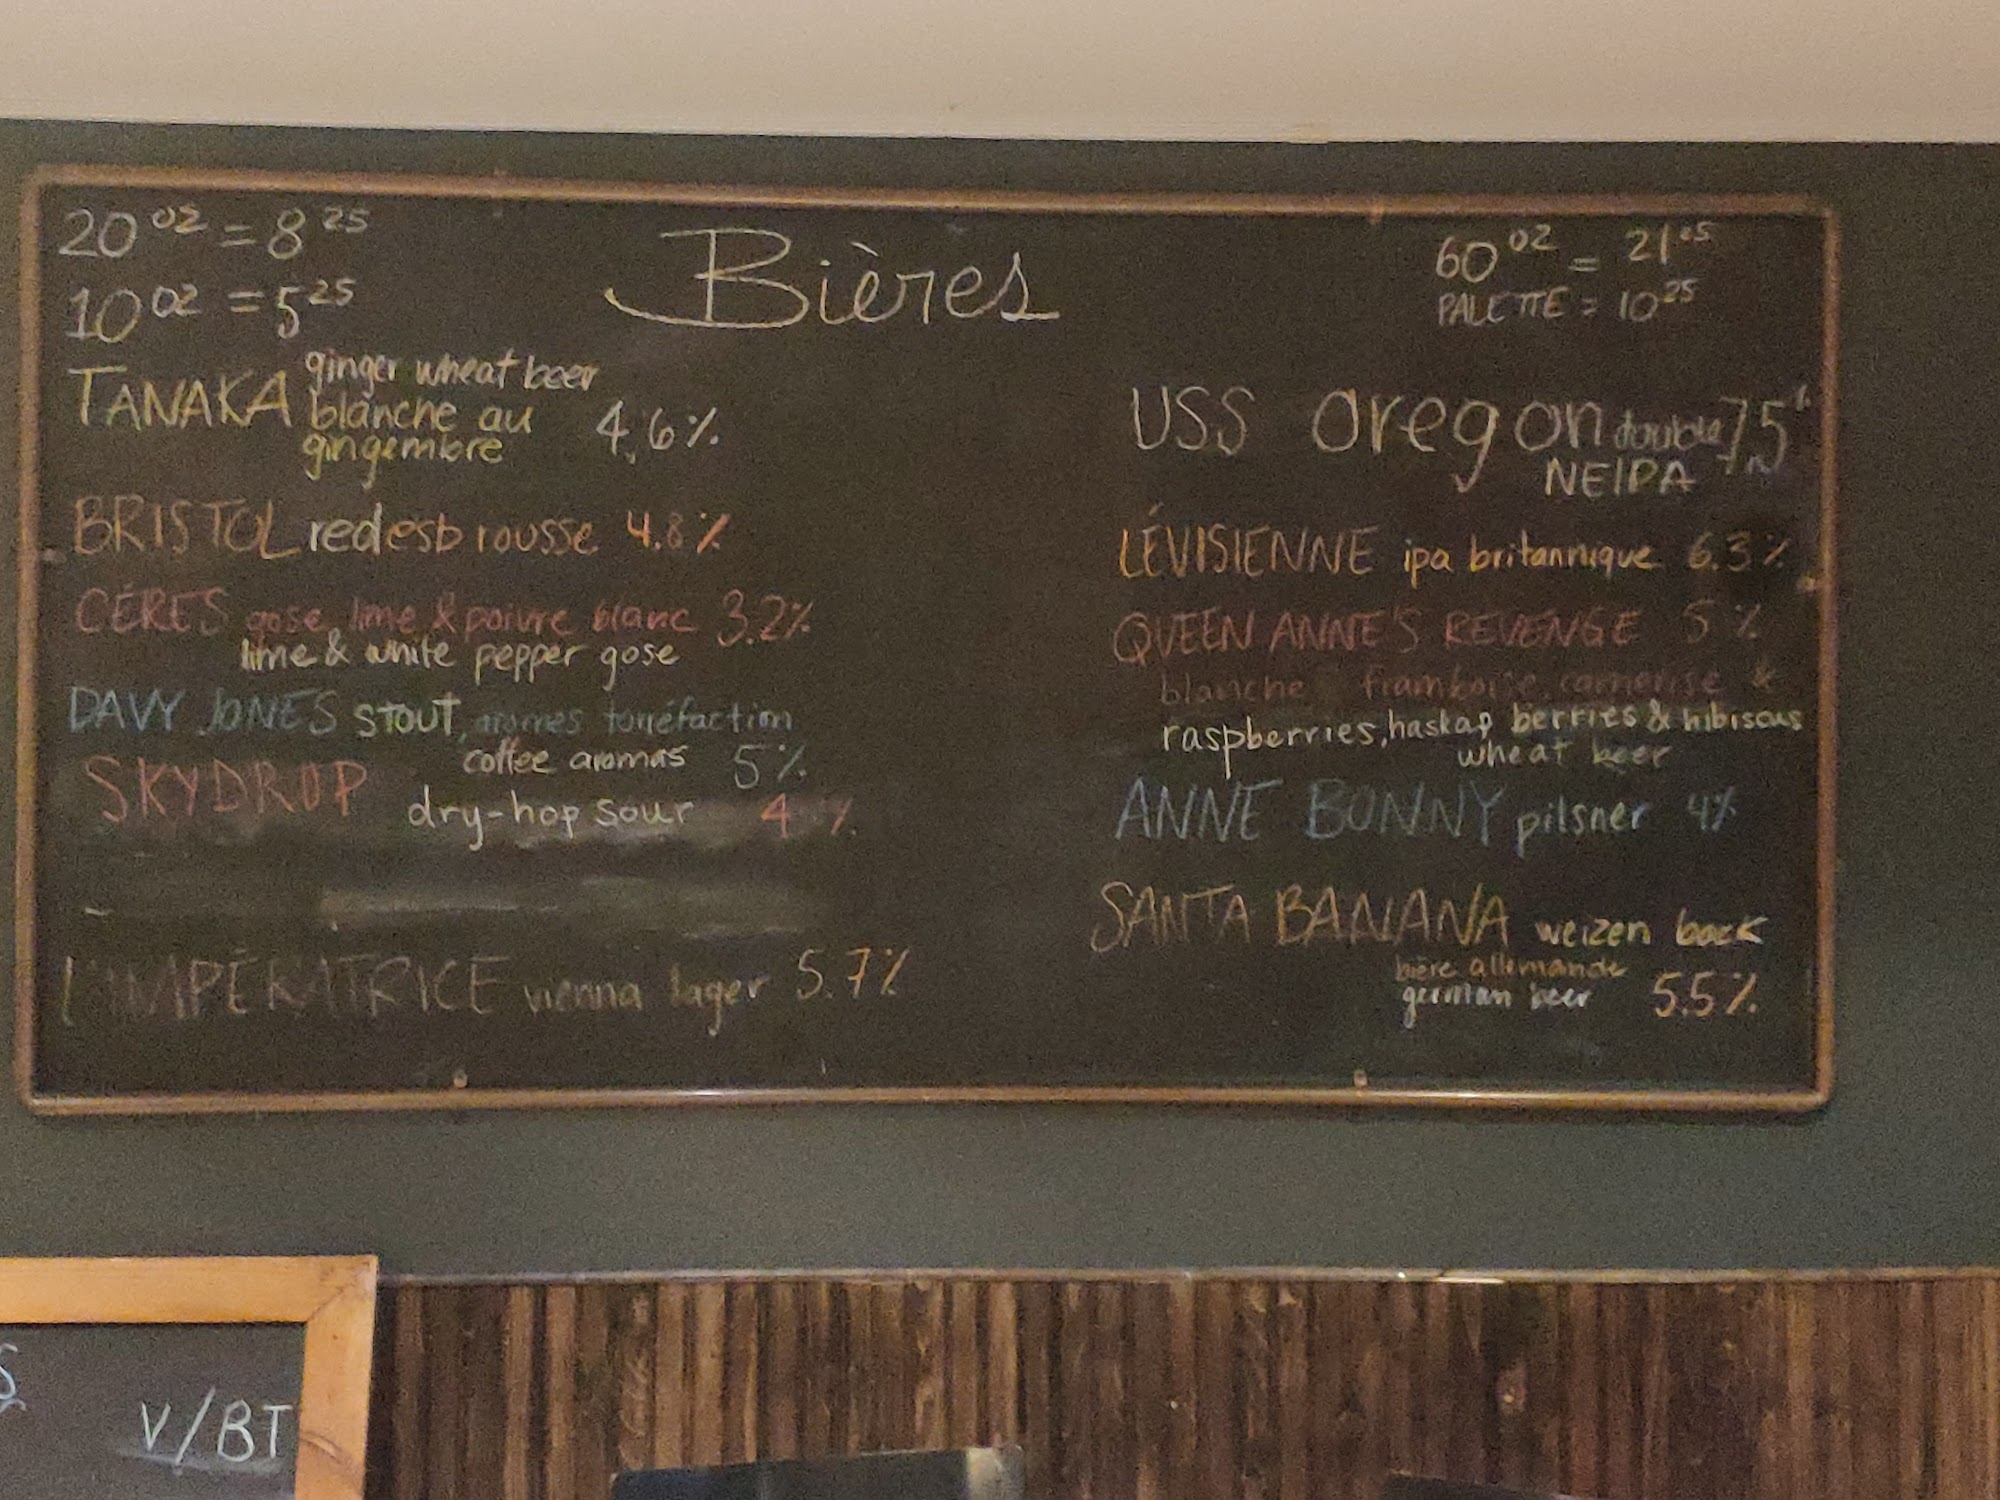 20 oz = 8 25
10 oz = 5 25
Bières
60 oz = 21 25
PALETTE = 10 25
TANAKA ginger wheat beer
blanche au 4,6%
gingembre
BRISTOL red esb rousse 4.8%
CÉRES gose, lime & poivre blanc 3.2%
lime & white pepper gose
DAVY JONES STOUT, aromes torréfaction
coffee aromas 5%
SKYDROP dry-hop sour 4%
L'IMPÉRATRICE vienna lager 5.7%
USS Oregon double 7.5%
NEIPA
LÉVISIENNE ipa britannique 6.3%
QUEEN ANNE'S REVENGE 5%
blanche framboise, camerise &
raspberries, haskap berries & hibiscus
wheat beer
ANNE BONNY pilsner 4%
SANTA BANANA weizen bock
bière allemande
german beer 5.5%
S
V/BT